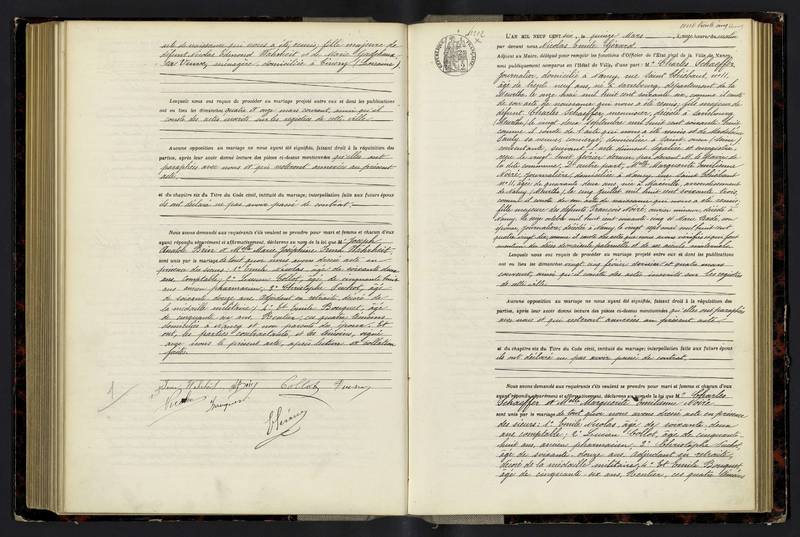 acte de naissance qui nous a été remis; fille majeure de
défunt Nicolas Edmond et de Marie
sa veuve, ménagère, domiciliée à (Lorraine)
Lesquels nous ont requis de procéder au mariage projeté entre eux et dont les publications
ont eu lieu les dimanches quatre et onze mars courant, ainsi qu'il
conste des actes inscrits sur les registres de cette ville
Aucune opposition au mariage ne nous ayant été signifiée, faisant droit à la réquisition des
parties, après leur avoir donné lecture des pièces ci-dessus mentionnées qu'elles ont
paraphées avec nous et qui resteront annexées au présent
acte
et du chapitre six du Titre du Code civil, intitulé du mariage; interpellation faite aux futurs époux
ils ont déclaré ne pas avoir passé de contrat.
Nous avons demandé aux requérants s'ils veulent se prendre pour mari et femme et chacun d'eux
ayant répondu séparément et affirmativement, déclarons au nom de la loi que Mr Joseph
et Melle Marie Joséphine
sont unis par le mariage de tout quoi nous avons dressé acte en
présence des sieurs: 1° Emile Nicolas, âgé de soixante deux
ans, comptable; 2° Lucien Collot, âgé de cinquante huit
ans, ancien pharmacien; 3° Christophe Puchot, âgé
de soixante douze ans, adjudant en retraite, décoré de
la médaille militaire; 4° Et Emile Bouquet, âgé
de cinquante six ans, Rentier; ces quatre témoins
domiciliés à Nancy et non parents des époux. Et
ont, les parties contractantes, et les témoins, signé
avec nous le présent acte, après lecture et collation
faite.
Collot
Nicolas Bouquet
E Gérard
L'AN MIL NEUF CENT six, le quinze Mars, à onze heures du matin
par devant nous Nicolas Emile Gérard
Adjoint au Maire, délégué pour remplir les fonctions d'Officier de l'Etat civil de la Ville de Nancy,
sont publiquement comparus en l'Hôtel de Ville, d'une part: Mr Charles Schaeffer
journalier, domicilié à Nancy, rue Saint Thiébaut, n° 11,
âgé de trente neuf ans, né à Sarrebourg, département de la
Meurthe, le onze mil huit cent soixante six, comme il conste
de son acte de naissance qui nous a été remis; fils majeur de
défunt Charles Schaeffer, menuisier, décédé à Sarrebourg
(Meurthe), le vingt deux septembre mil huit cent soixante
comme il conste de l'acte qui nous a été remis et de Madeleine
sa veuve, domiciliée à Saint (Nancy)
consentante, suivant acte dûment légalisé et enregistré,
reçu le vingt huit février dernier par devant M. le Maire de
la dite commune. D'autre part, Melle Marguerite Emilienne
Noiré, journalière, domiciliée à Nancy, rue Saint Thiébaut
N° 11, âgée de quarante deux ans, née à Maxéville, arrondissement
de Nancy (Meurthe), le cinq juillet mil huit cent soixante trois,
comme il conste de son acte de naissance qui nous a été remis;
fille majeure des défunts François Noiré, ouvrier mineur, décédé à
Nancy, le onze octobre mil huit cent soixante cinq et Marie
journalière, décédée à Nancy, le vingt sept mai mil huit cent
quatre vingt dix, comme il conste des actes
Lesquels nous ont requis de procéder au mariage projeté entre eux et dont les publications
ont eu lieu les dimanches vingt cinq février dernier et quatre mars
courant, ainsi qu'il conste des actes inscrits sur les registres
de cette ville.
Aucune opposition au mariage ne nous ayant été signifiée, faisant droit à la réquisition des
parties, après leur avoir donné lecture des pièces ci-dessus mentionnées qu'elles ont paraphées
avec nous et qui resteront annexées au présent acte
et du chapitre six du Titre du Code civil, intitulé du mariage; interpellation faite aux futurs époux
ils ont déclaré ne pas avoir passé de contrat.
Nous avons demandé aux requérants s'ils veulent se prendre pour mari et femme et chacun d'eux
ayant répondu séparément et affirmativement, déclarons au nom de la loi que Mr Charles
Schaeffer et Melle Marguerite Emilienne Noiré
sont unis par le mariage de tout quoi nous avons dressé acte en présence
des sieurs: 1° Emile Nicolas, âgé de soixante deux
ans, comptable; 2° Lucien Collot, âgé de cinquante
huit ans, ancien pharmacien; 3° Christophe Puchot,
âgé de soixante douze ans, adjudant en retraite,
décoré de la médaille militaire; 4° Et Emile Bouquet
âgé de cinquante six ans, Rentier, ces quatre témoins